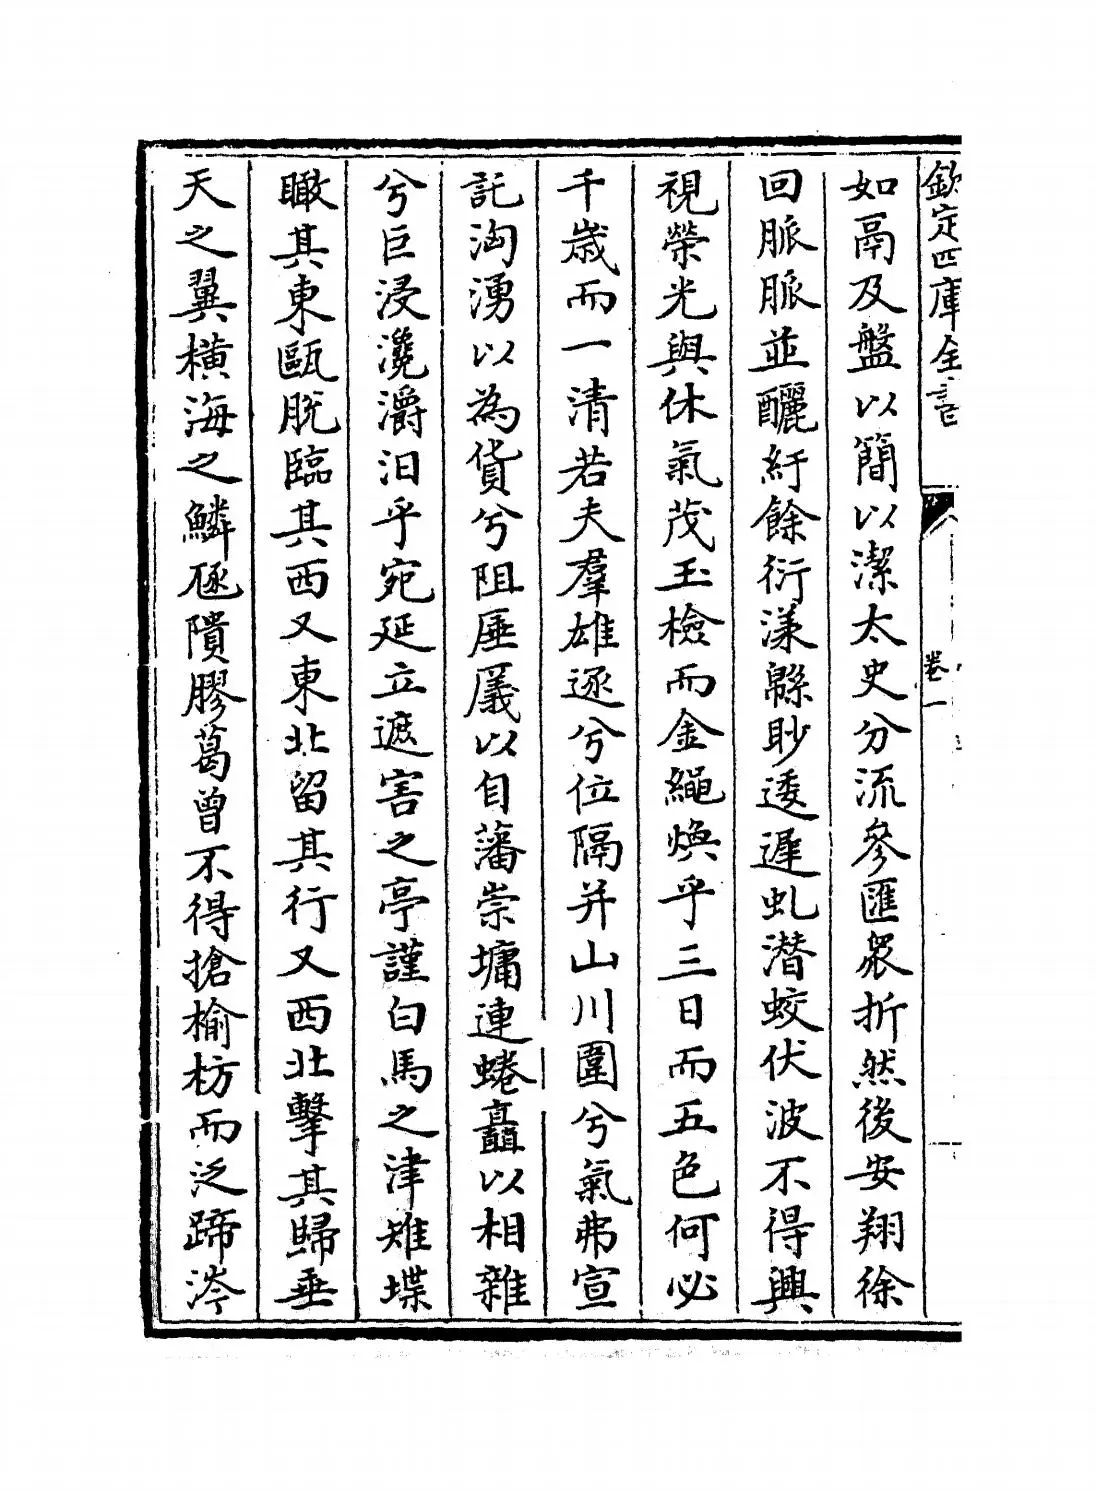 欽定四庫全書
卷一
如鬲及盤以簡以潔太史分流參匯衆折然後安翔徐
回脈脈並釃紆餘衍漾緜眇逶遲虬潛蛟伏波不得興
視榮光與休氣茂玉檢而金繩煥乎三日而五色何必
千歲而一清若夫羣雄逐兮位隔并山川圍兮氣弗宣
託洶湧以為貨兮阻厜㕒以自藩崇墉連蜷矗以相雜
兮巨浸灇灂汩乎宛延立遮害之亭謹白馬之津雉堞
瞰其東甌脫臨其西又東北留其行又西北擊其歸垂
天之翼橫海之鱗㞃隤膠葛曾不得搶榆枋而泛蹄涔